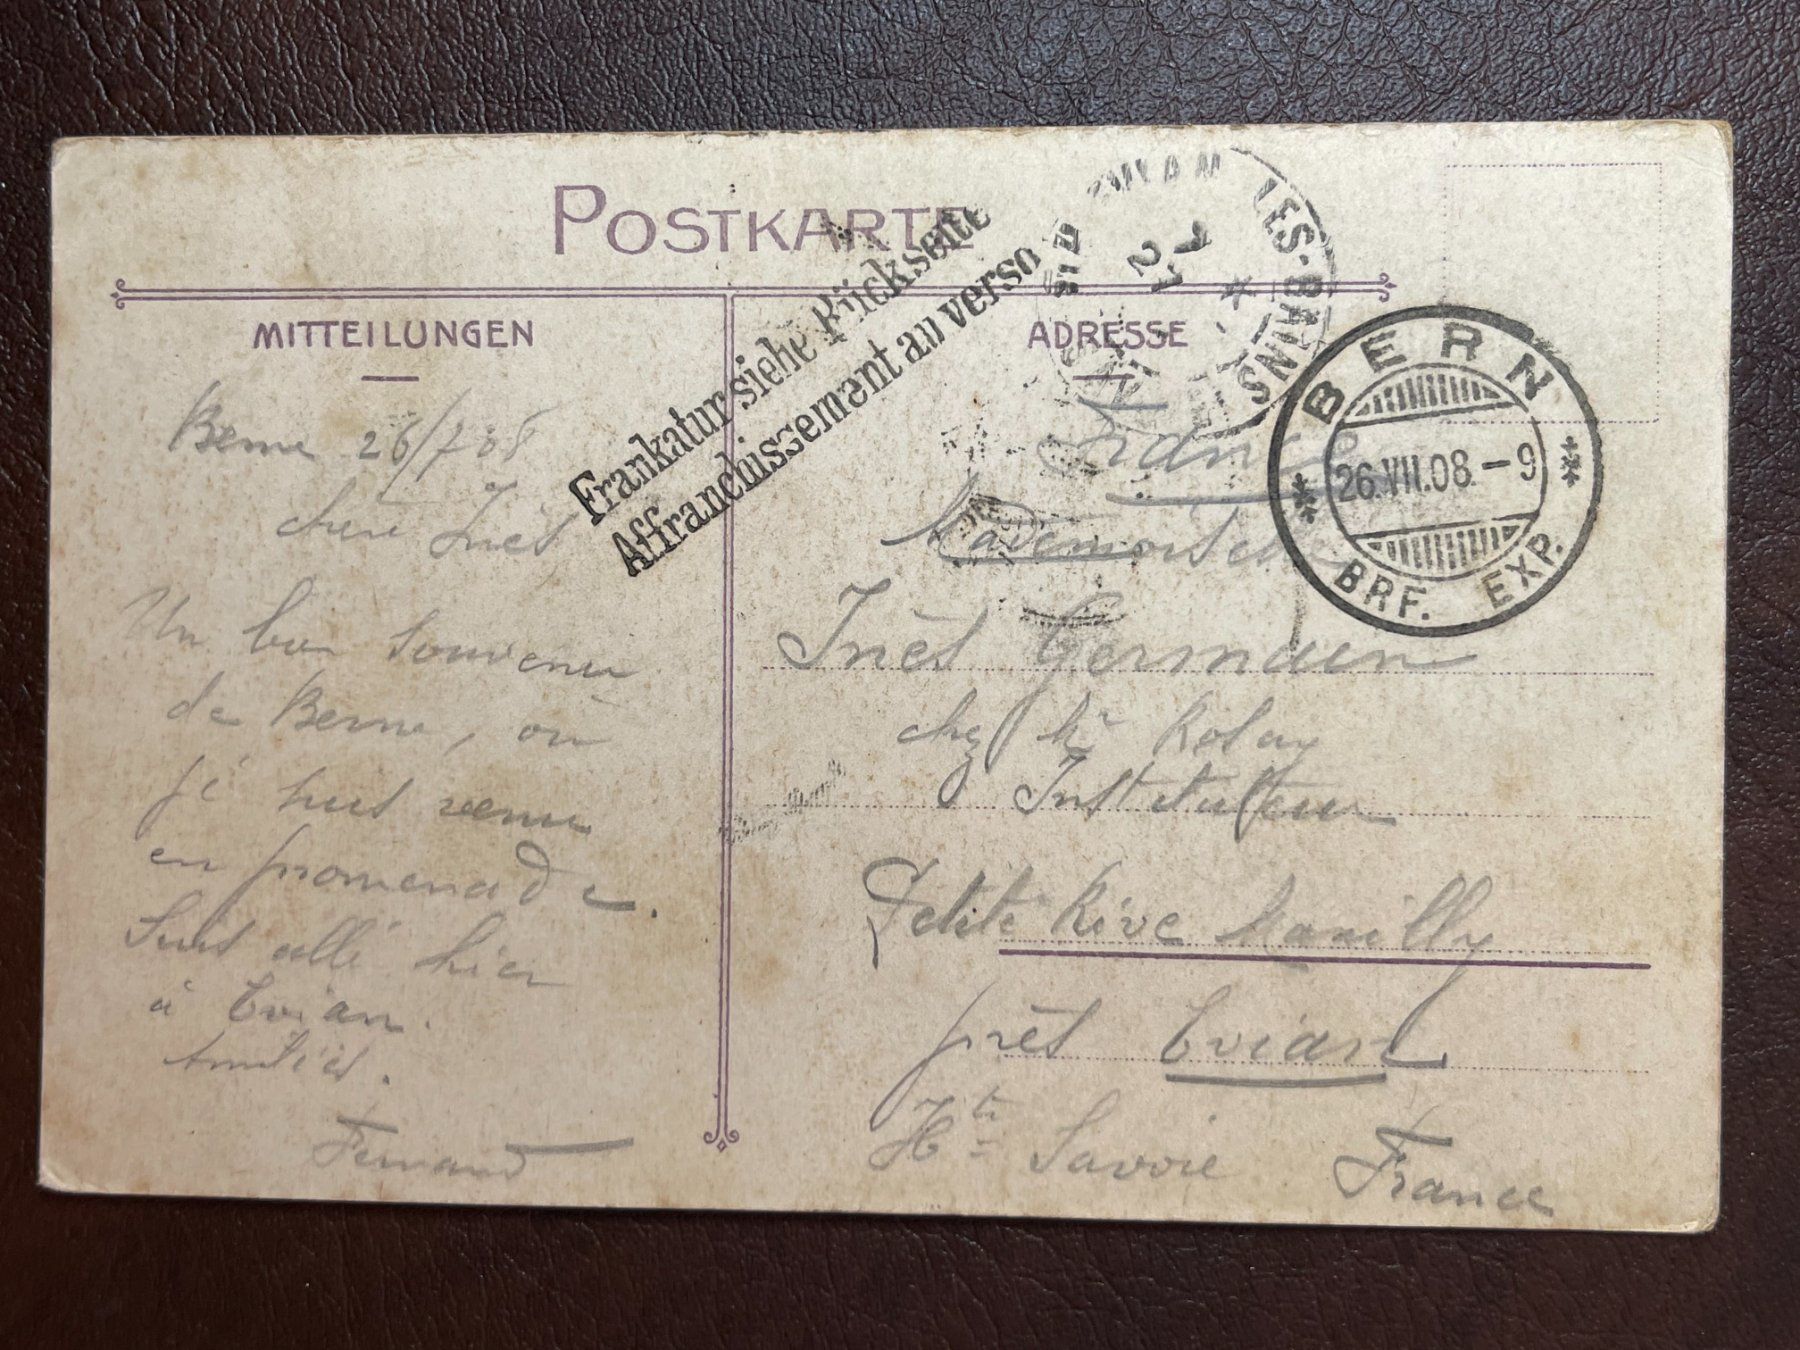 POSTKARTE
Frankatur siehe Rückseite
Affranchissement au verso
LES-BAINS
MITTEILUNGEN
ADRESSE
BERN
26.VII.08.-9
BRF. EXP.
Berne 26/7 08
chère Inès
Un bon souvenir
de Berne, où
je suis venu
en promenade.
Suis allé hier
à Evian.
Amitiés.
Fernand
France
Mademoiselle
Inès Germain
chez Mr
Instituteur
Petite Rive Maxilly
près Evian
Hte Savoie France